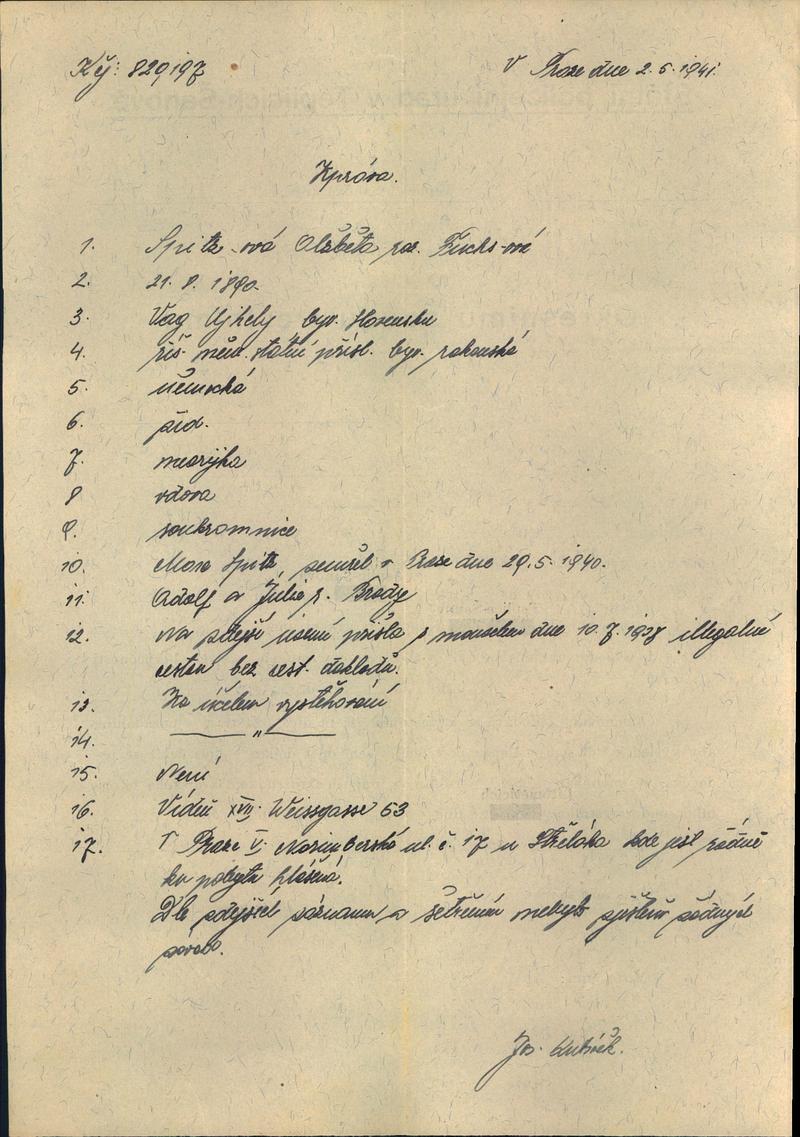 K čj: 829197
V Praze dne 2.5.1941.
Zpráva.
1. Spitz-ová Olžběta roz. Fuchs-ová
2. 21. 8. 1890.
3. Vag Ujhely byv. Slovensko
4. říš. něm. státní přísl. byv. rakouská
5. německá
6. žid.
7. nearijka
8 vdova
9. soukromnice
10. Mora Spitz, zemřel v Praze dne 29.5.1940.
11. Adolf a Julie r. Brody
12. Na zdejší území přišla s manželem dne 10.7.1938 illegálně
cestou bez cest. dokladů.
13. Za účelem vystěhování
14. — " —
15. Není
16. Vídeň XVII. Weissgasse 53
17. V Praze V. Norimberská ul. č. 17 u Střeláka kde jest řádně
ku pobytu hlášená.
Dle zdejších záznamů a šetřením nebylo zjištěno žádných
závad.
Jos. Kubíček.